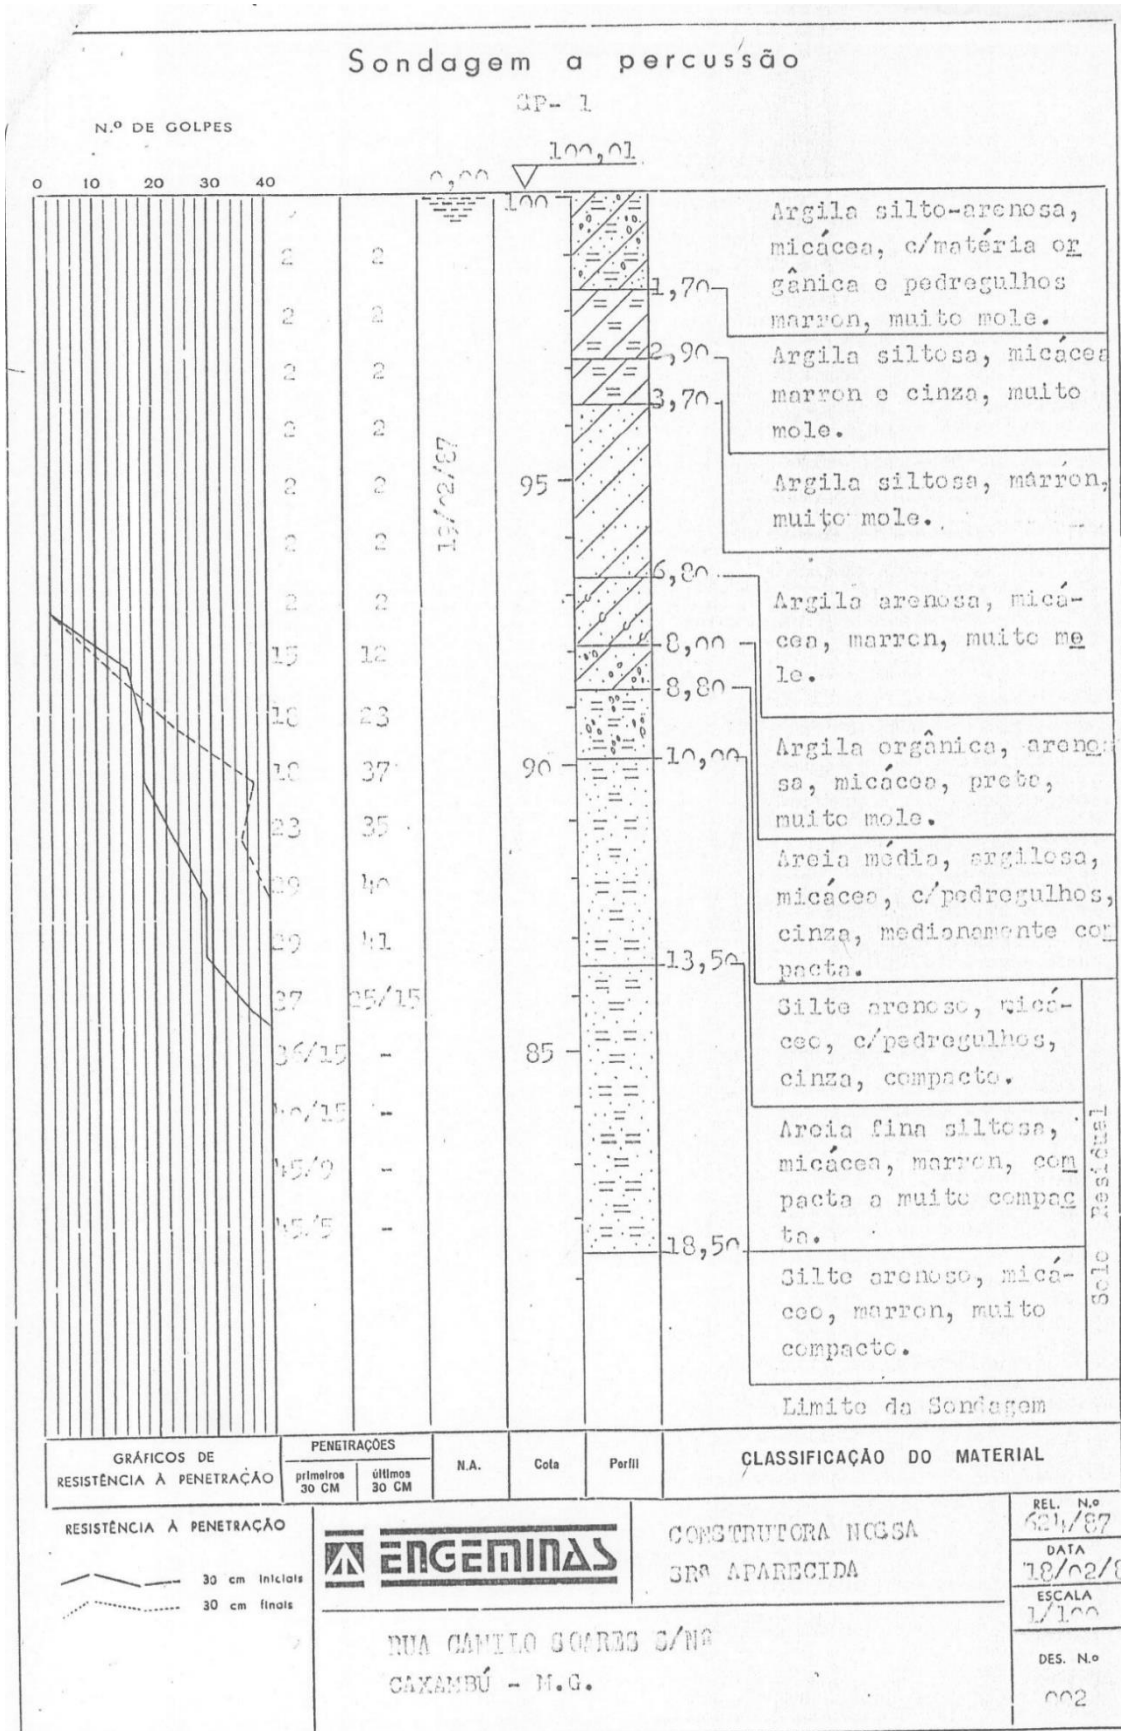 Sondagem a percussão
SP- 1
N.º DE GOLPES
100,01
0 10 20 30 40
0,00
100
2 2
2 2
2 2
2 2
2 2
2 2
2 2
15 12
18 23
18 37
23 35
29 40
29 41
37 25/15
36/15 -
40/15 -
45/9 -
45/5 -
19/02/87
95
90
85
1,70
2,90
3,70
6,80
8,00
8,80
10,00
13,50
18,50
Argila silto-arenosa,
micácea, c/matéria or
gânica e pedregulhos
marron, muito mole.
Argila siltosa, micácea
marron e cinza, muito
mole.
Argila siltosa, marron,
muito mole.
Argila arenosa, micá-
cea, marron, muito mo
le.
Argila orgânica, areno
sa, micácea, preta,
muito mole.
Areia média, argilosa,
micácea, c/pedregulhos,
cinza, medianamente com
pacta.
Silte arenoso, micá-
ceo, c/pedregulhos,
cinza, compacto.
Areia fina siltosa,
micácea, marron, com
pacta a muito compac
ta.
Silte arenoso, micá-
ceo, marron, muito
compacto.
Solo Residual
Limite da Sondagem
GRÁFICOS DE
RESISTÊNCIA À PENETRAÇÃO
PENETRAÇÕES
primeiros
30 CM
últimos
30 CM
N.A.
Cota
Perfil
CLASSIFICAÇÃO DO MATERIAL
RESISTÊNCIA À PENETRAÇÃO
30 cm iniciais
30 cm finais
ENGEMINAS
CONSTRUTORA NOSSA
SRª APARECIDA
REL. N.º
624/87
DATA
18/02/8
ESCALA
1/100
DES. N.º
002
RUA CAMILO SOARES S/Nº
CAXAMBÚ - M.G.